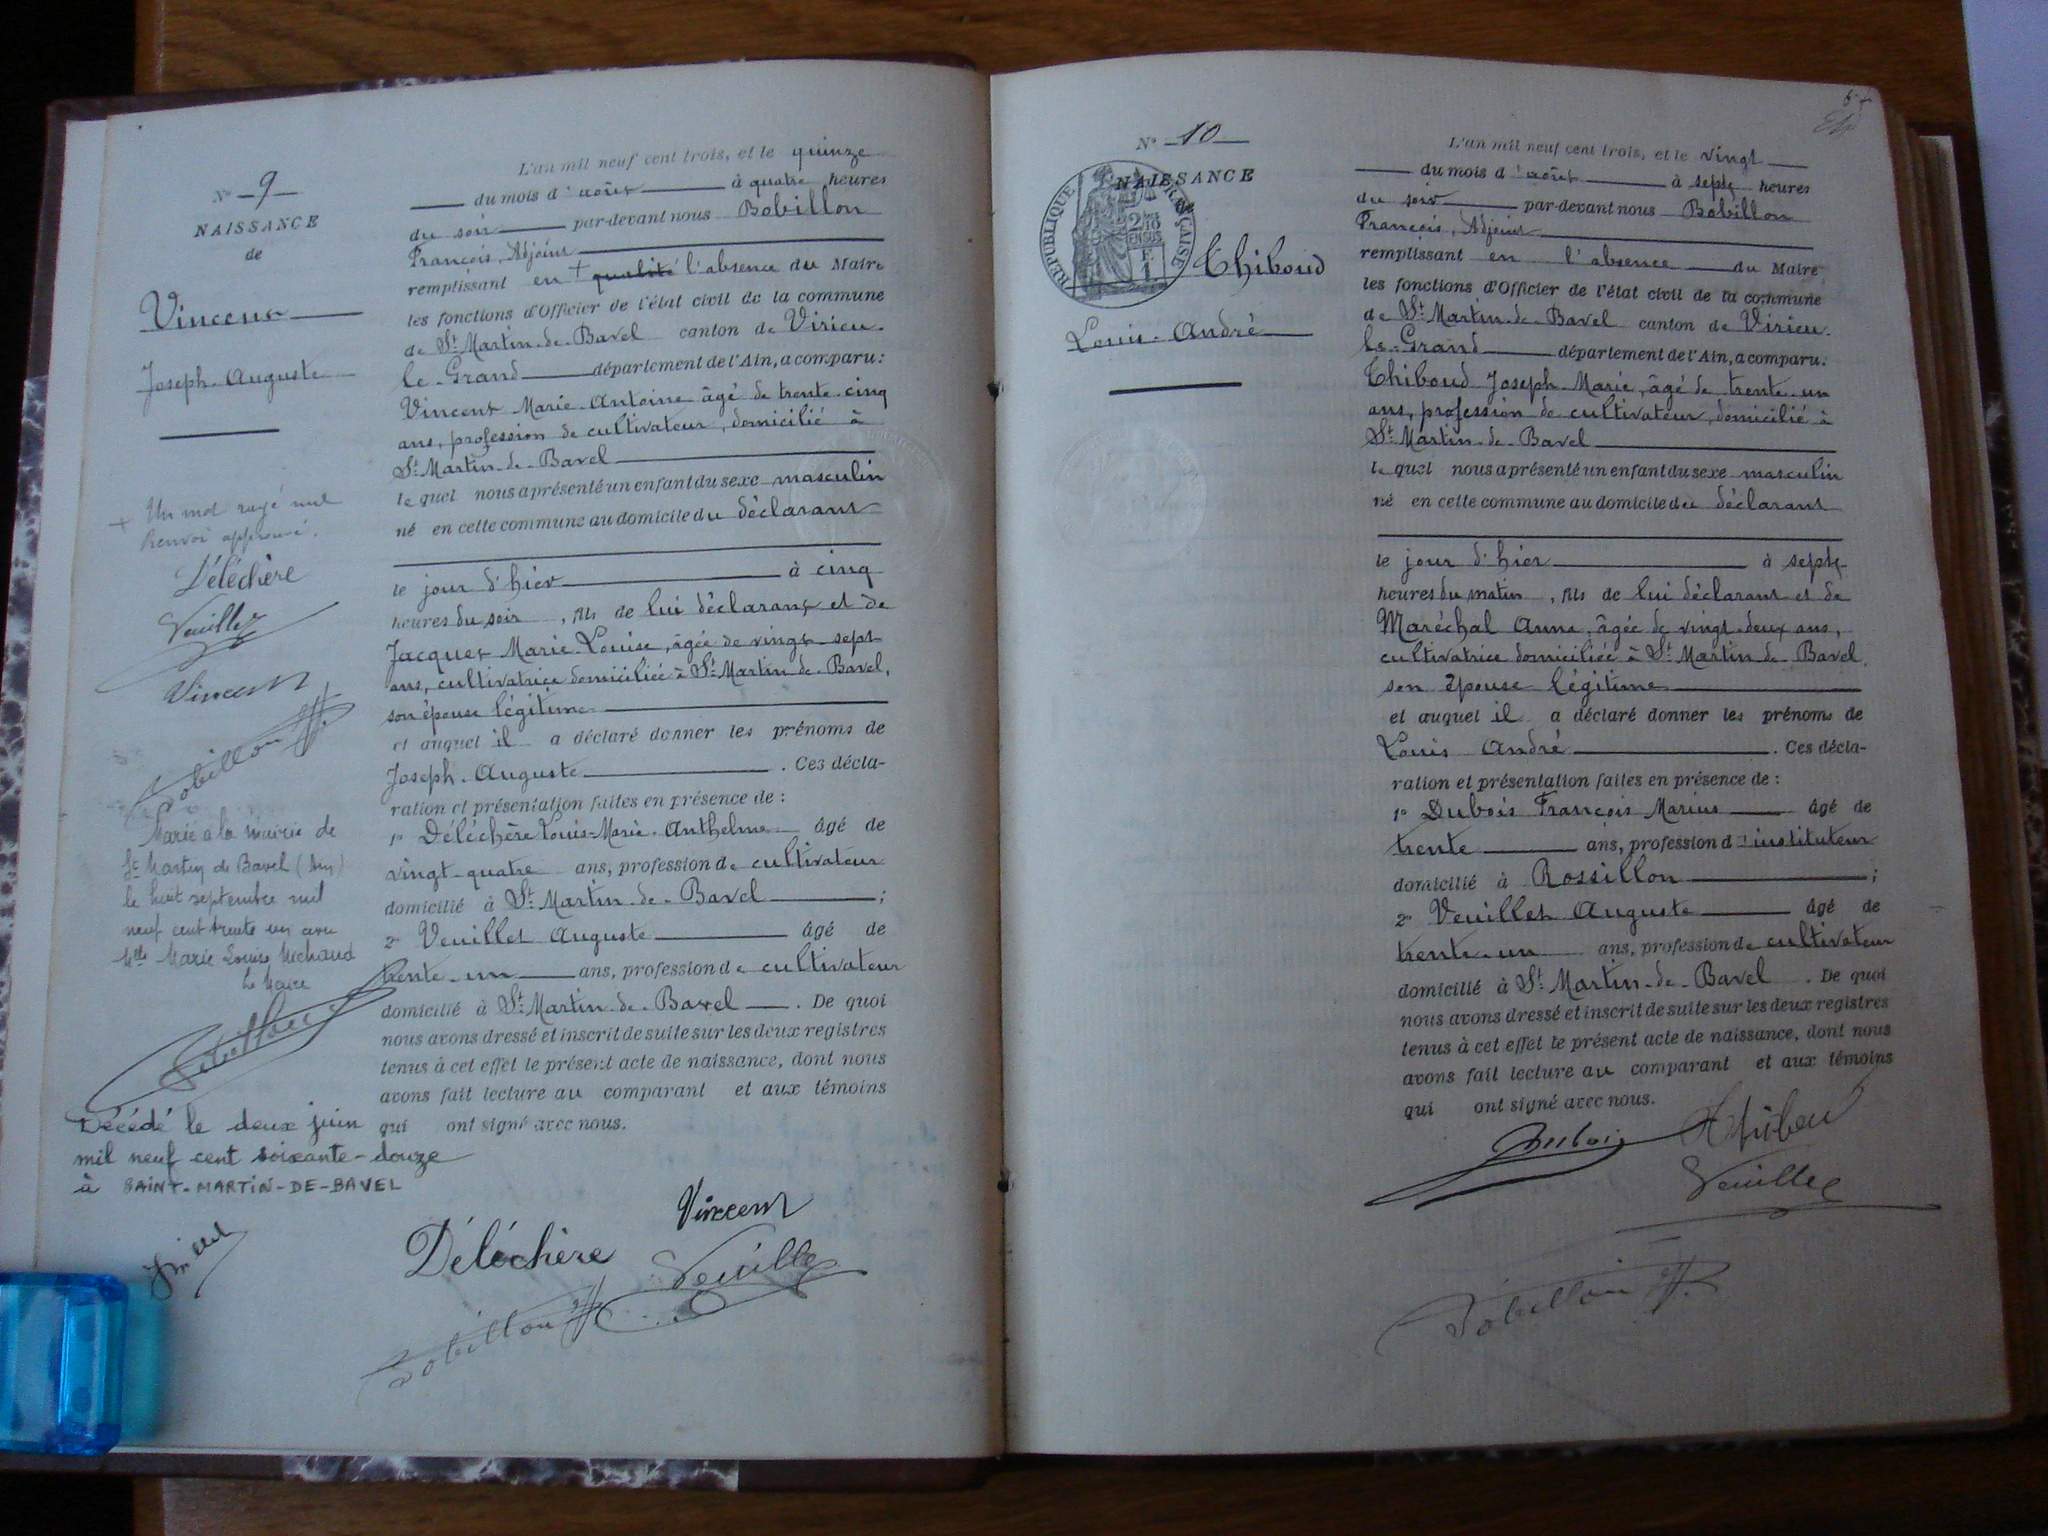 N° 9
NAISSANCE
de
Vincent
Joseph-Auguste
+ Un mot rayé nul
Renvoi approuvé.
Déléchère
Veuillet
Vincent
Bobillon
Marié à la mairie de
St Martin de Bavel (Ain)
le huit septembre mil
neuf cent trente un avec
Mlle Marie Louise Michaud
Le Maire
Décédé le deux juin
mil neuf cent soixante-douze
à SAINT-MARTIN-DE-BAVEL
L'an mil neuf cent trois, et le quinze
du mois d'août à quatre heures
du soir par-devant nous Bobillon
François, Adjoint
remplissant en + qualité l'absence du Maire
les fonctions d'Officier de l'état civil de la commune
de St Martin-de-Bavel canton de Virieu-
le-Grand département de l'Ain, a comparu:
Vincent Marie-Antoine âgé de trente-cinq
ans, profession de cultivateur, domicilié à
St Martin-de-Bavel
lequel nous a présenté un enfant du sexe masculin
né en cette commune au domicile du déclarant
le jour d'hier à cinq
heures du soir, fils de lui déclarant et de
Jacquet Marie-Louise, âgée de vingt-sept
ans, cultivatrice domiciliée à St Martin-de-Bavel,
son épouse légitime
et auquel il a déclaré donner les prénoms de
Joseph-Auguste. Ces décla-
ration et présentation faites en présence de :
1° Déléchère Louis-Marie-Anthelme âgé de
vingt-quatre ans, profession de cultivateur
domicilié à St Martin-de-Bavel ;
2° Veuillet Auguste âgé de
trente-un ans, profession de cultivateur
domicilié à St Martin-de-Bavel. De quoi
nous avons dressé et inscrit de suite sur les deux registres
tenus à cet effet le présent acte de naissance, dont nous
avons fait lecture au comparant et aux témoins
qui ont signé avec nous.
Vincent
Déléchère Veuillet
Bobillon
N° 10
NAISSANCE
de
RÉPUBLIQUE FRANÇAISE
Thiboud
Louis-André
L'an mil neuf cent trois, et le vingt
du mois d'août à sept heures
du soir par-devant nous Bobillon
François, Adjoint
remplissant en l'absence du Maire
les fonctions d'Officier de l'état civil de la commune
de St Martin-de-Bavel canton de Virieu-
le-Grand département de l'Ain, a comparu:
Thiboud Joseph-Marie, âgé de trente-un
ans, profession de cultivateur, domicilié à
St Martin-de-Bavel
lequel nous a présenté un enfant du sexe masculin
né en cette commune au domicile du déclarant
le jour d'hier à sept
heures du matin, fils de lui déclarant et de
Maréchal Anna, âgée de vingt-deux ans,
cultivatrice domiciliée à St Martin-de-Bavel,
son épouse légitime
et auquel il a déclaré donner les prénoms de
Louis André. Ces décla-
ration et présentation faites en présence de :
1° Dubois François Marius âgé de
trente ans, profession d'instituteur
domicilié à Rossillon ;
2° Veuillet Auguste âgé de
trente-un ans, profession de cultivateur
domicilié à St Martin-de-Bavel. De quoi
nous avons dressé et inscrit de suite sur les deux registres
tenus à cet effet le présent acte de naissance, dont nous
avons fait lecture au comparant et aux témoins
qui ont signé avec nous.
Dubois Thiboud
Veuillet
Bobillon